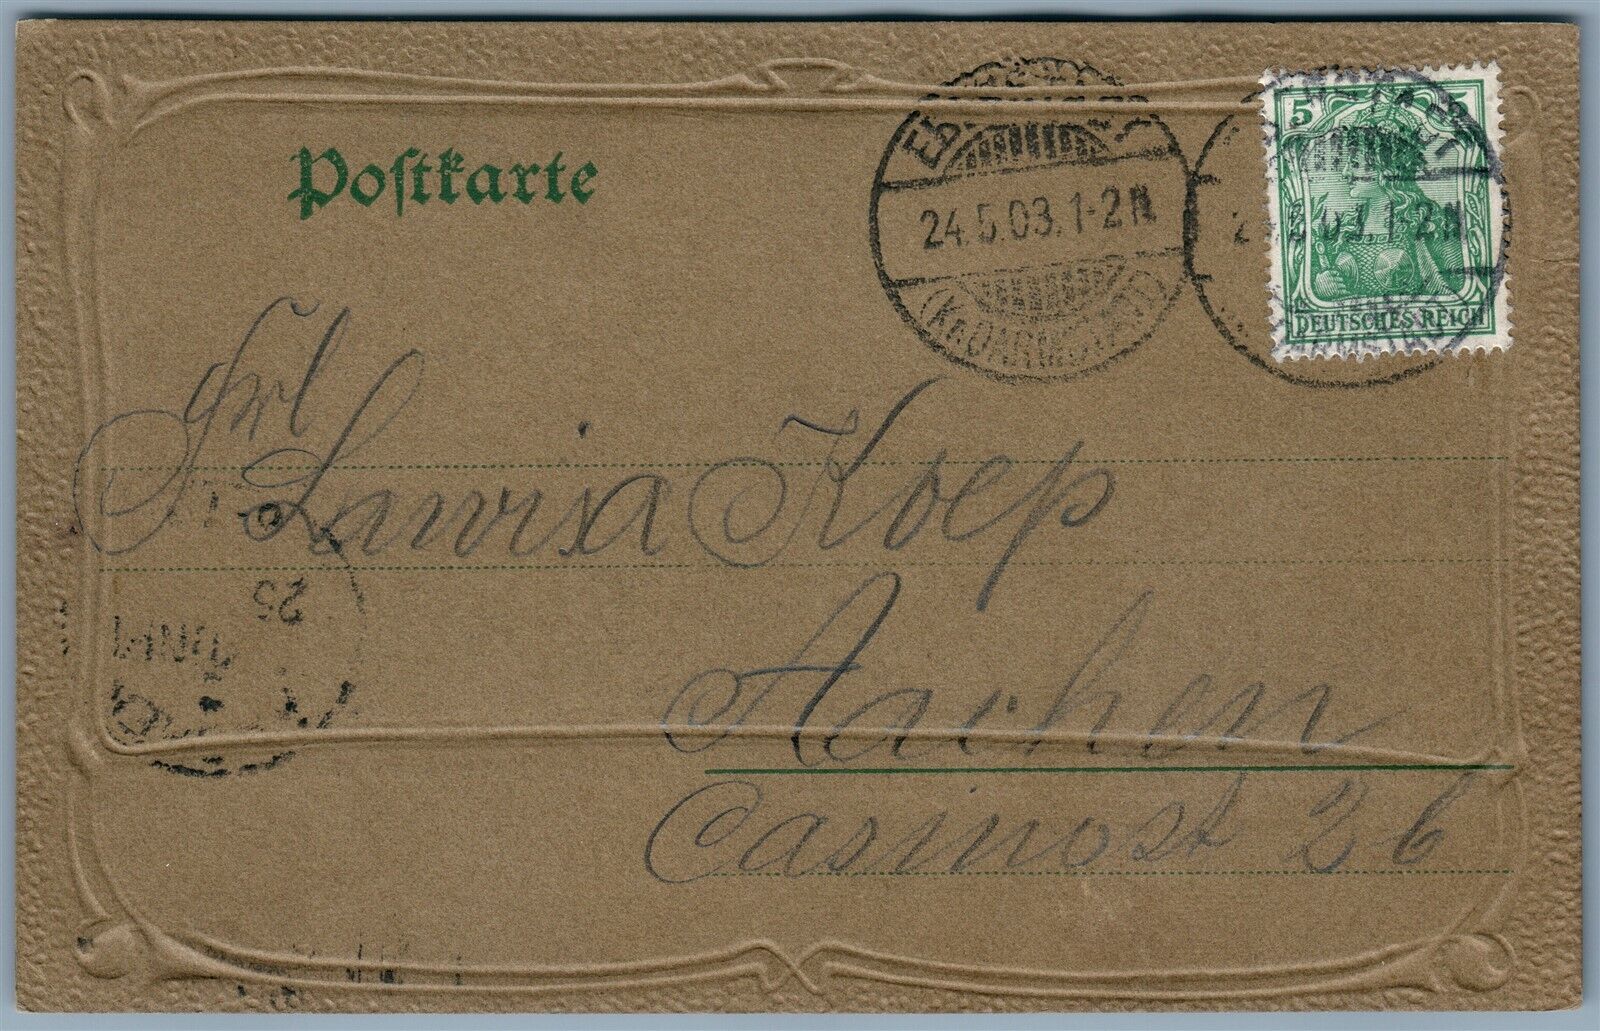 Postkarte
24.5.03.1-2N
(Kr. DARMSTADT)
5 5
DEUTSCHES REICH
Frl
Lauisa Koep
Aachen
Casinost 26
25